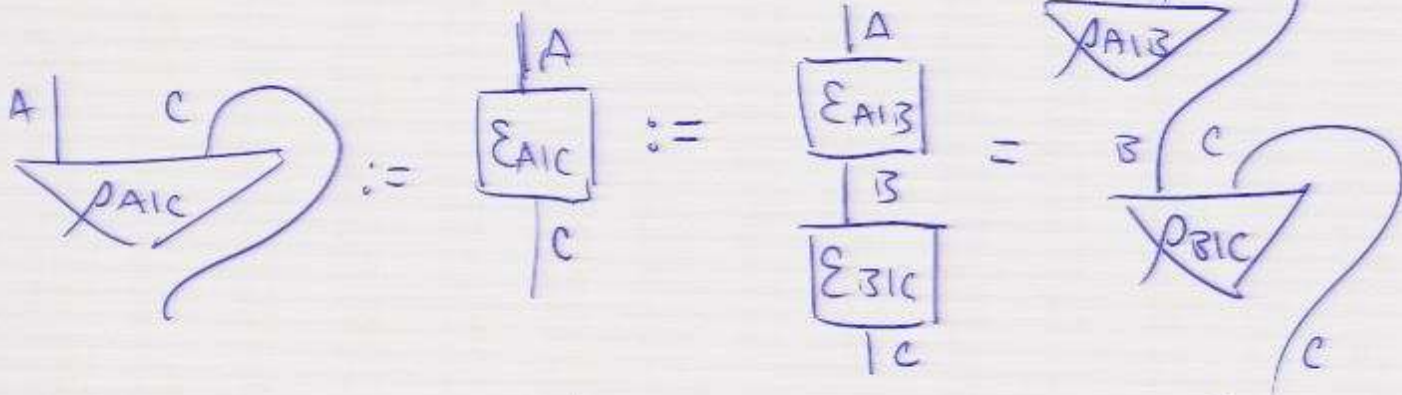 A C ρA|C := A εA|C C := A εA|B B εB|C C = ρA|B B C ρB|C C